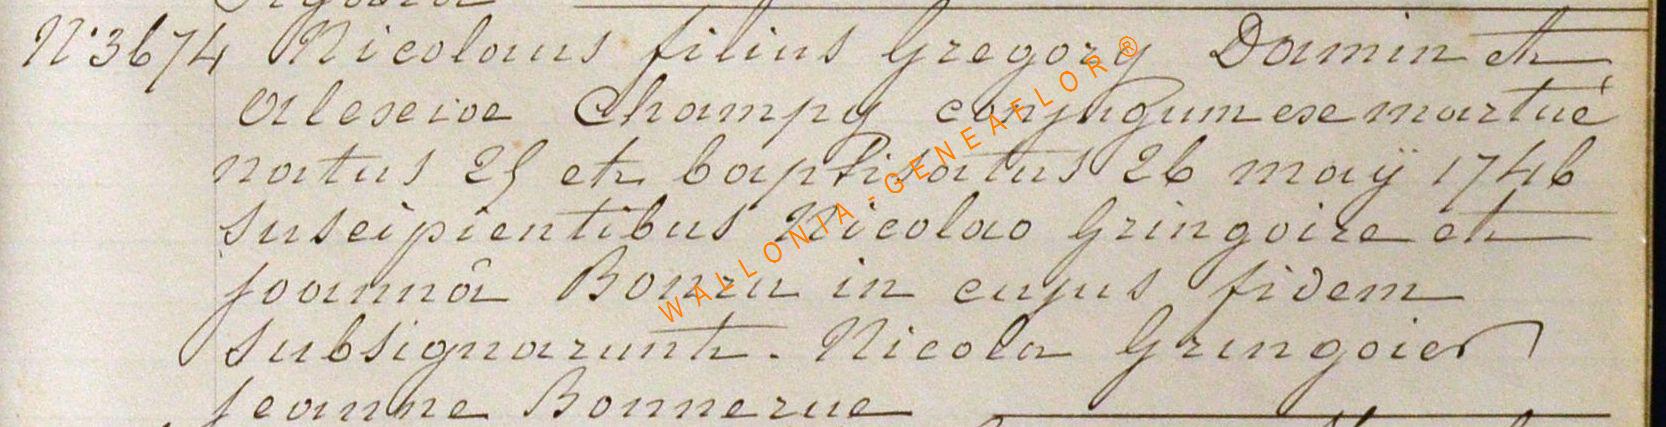 N° 3674 Nicolaus filius Gregory Damin et
Alexiae Champy conjugum ex martué
natus 25 et baptisatus 26 maÿ 1746
suscipientibus Nicolao Gringoire et
Joannâ Bonru in cujus fidem
subsignarunt. Nicola Gringoier
Jeanne Bonnerue
WALLONIA-GENEAFLOR®